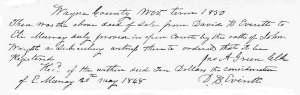 Wayne County Nov. term 1850
Then was the above deed of sale from David B Everett to
Eli Murray duly proven in open Court by the oath of John
Wright a Subscribing witness thereto ordered that be
Registered Jas A Green Clk
Recd. of the within deed Ten Dollars the consideration
of E Murray 20th may 1848
D. B Everitt